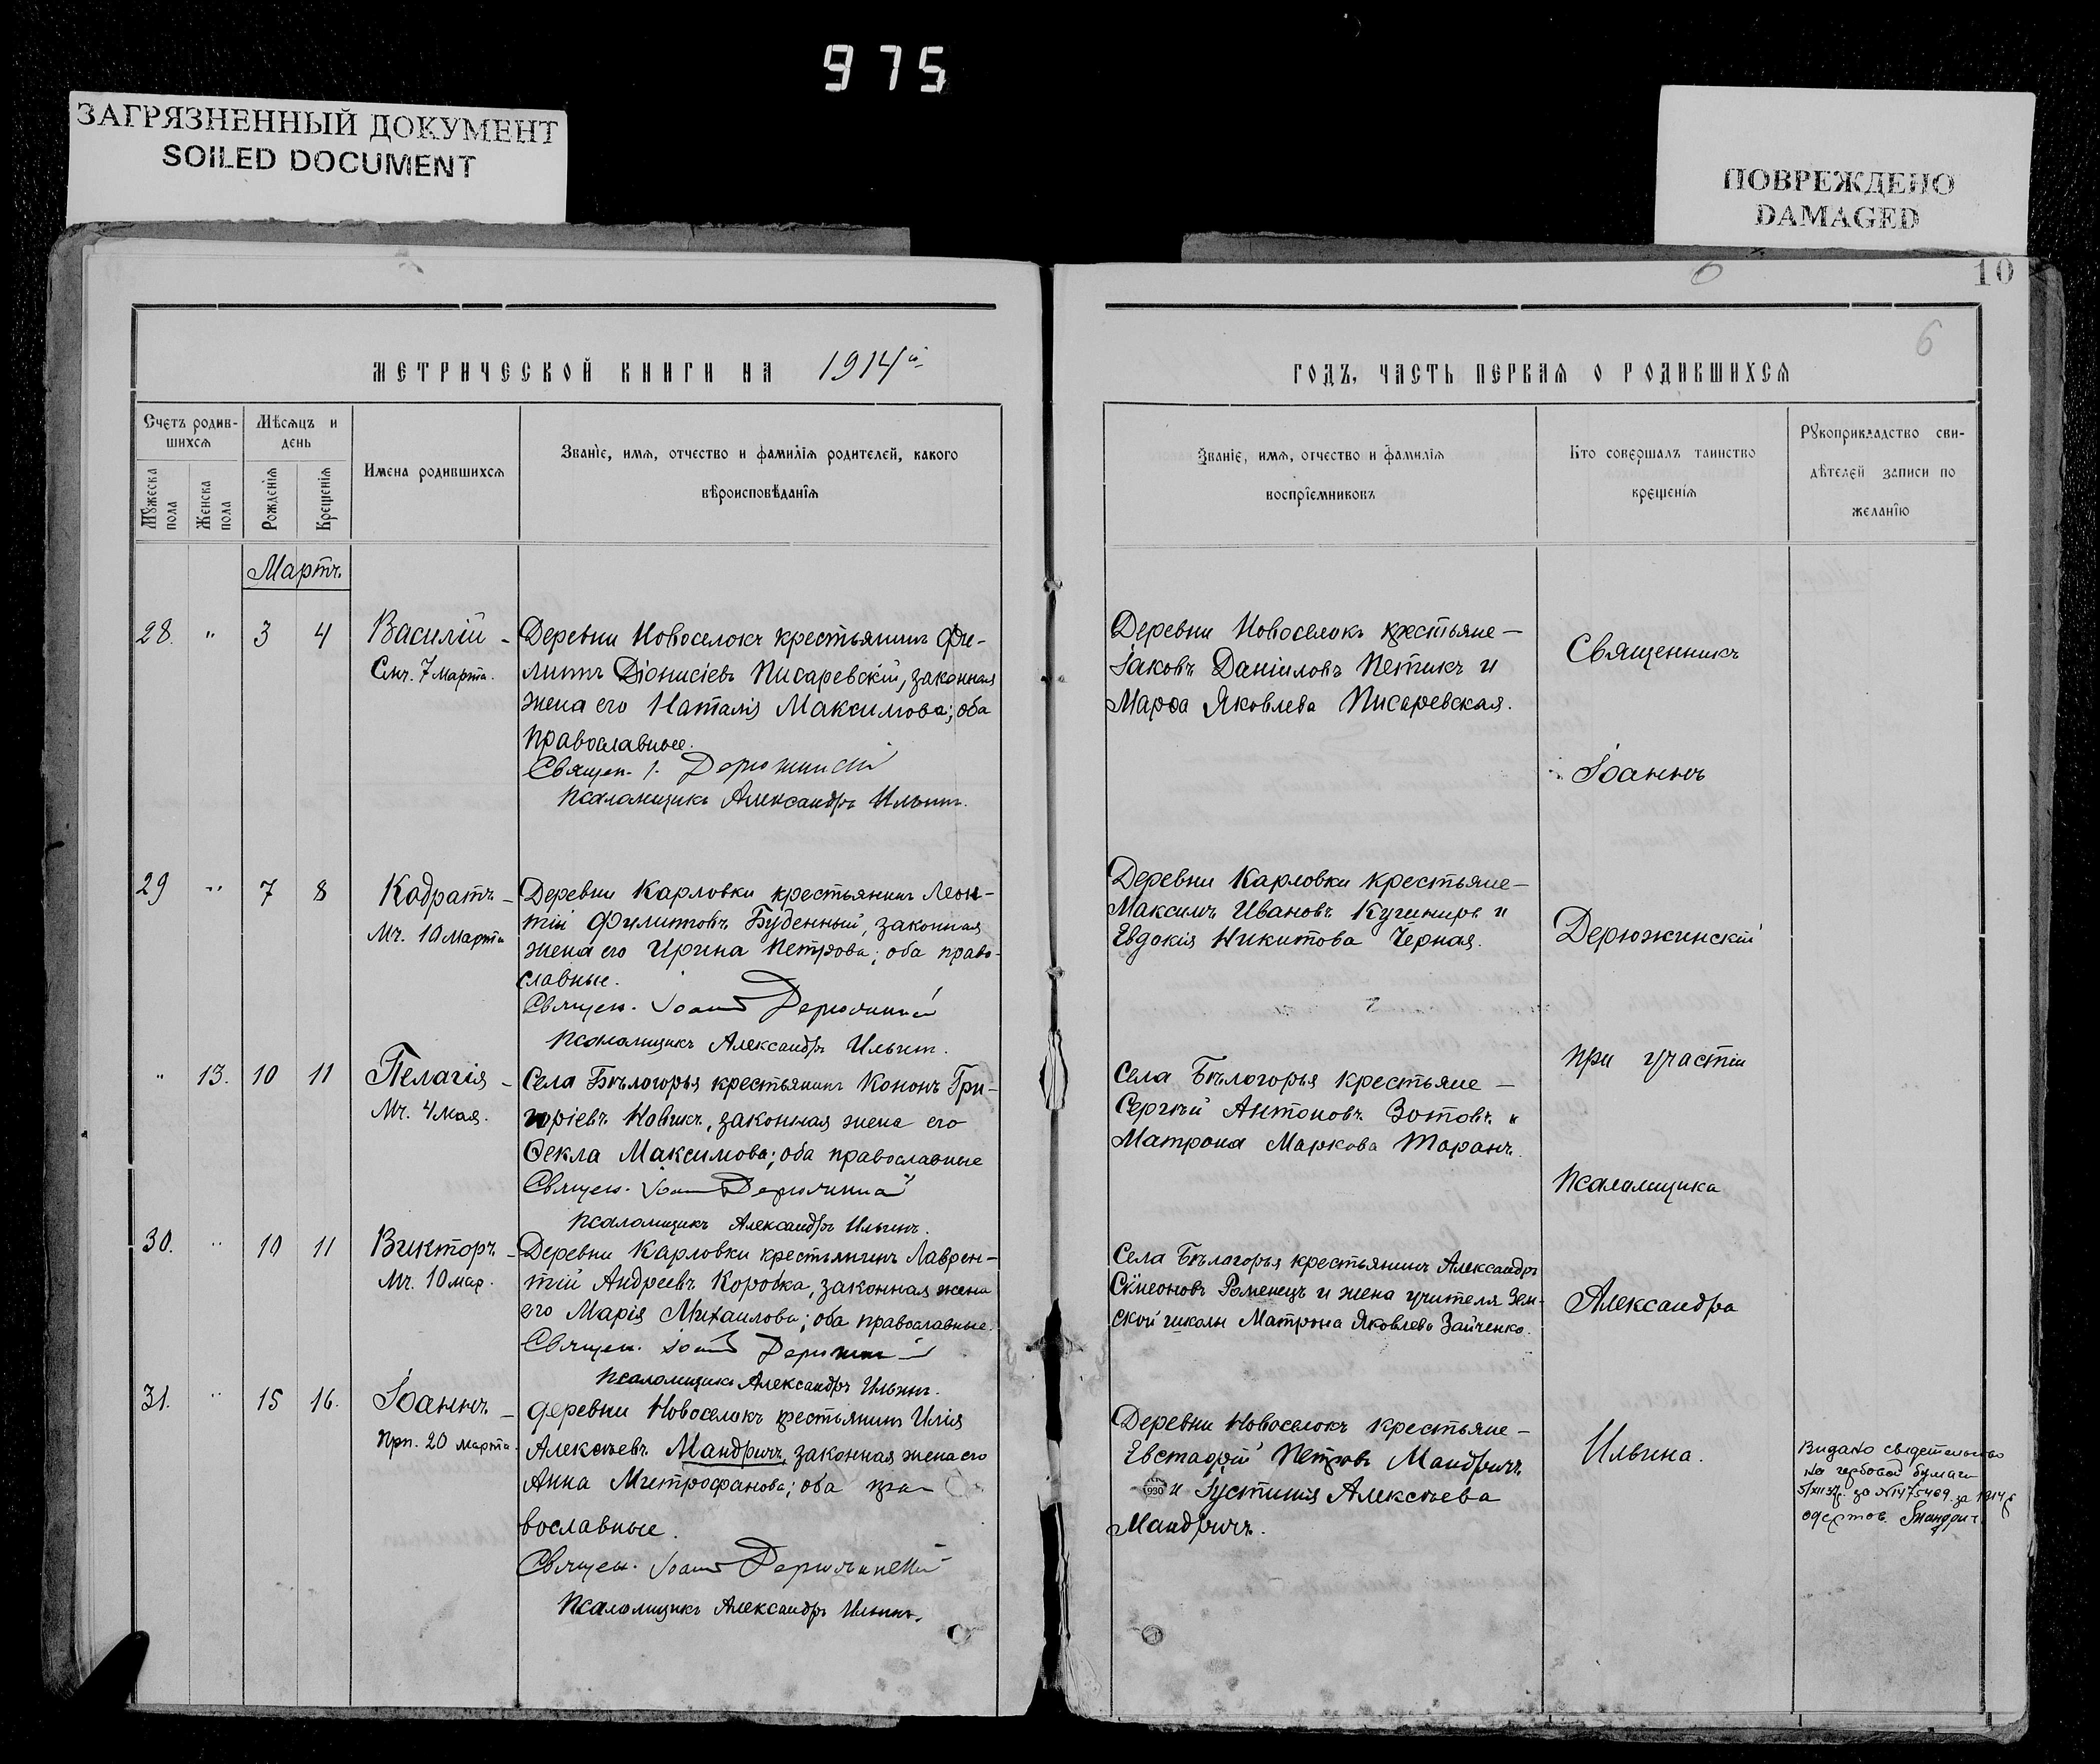 975
ЗАГРЯЗНЕННЫЙ ДОКУМЕНТ
SOILED DOCUMENT
ПОВРЕЖДЕНО
DAMAGED
10
6
МЕТРИЧЕСКОЙ КНИГИ НА 1914й
Счетъ родив-
шихся
Мѣсяцъ и
день
Мужеска
пола
Женска
пола
Рожденія
Крещенія
Имена родившихся
Званіе, имя, отчество и фамилія родителей, какого
вѣроисповѣданія
Мартъ
28. " 3 4 Василій - Деревни Новоселокъ крестьянинъ Фи-
Смч. 7 Марта. липпъ Діонисіевъ Писаревскій, законная
жена его Наталія Максимова; оба
православные.
Священ. І. Дерюжинскій
Псаломщикъ Александръ Ильинъ.
29 " 7 8 Кодратъ - Деревни Карловки крестьянинъ Леон-
Мч. 10 Марта тій Филиповъ Буденный, законная
жена его Ирина Петрова; оба право-
славные.
Священ. Іоаннъ Дерюжинскій
Псаломщикъ Александръ Ильинъ.
" 13. 10 11 Пелагія - Села Бѣлогорья крестьянинъ Кононъ Гри-
Мч. 4 мая. горіевъ Новикъ, законная жена его
Ѳекла Максимова; оба православные
Священ. Іоаннъ Дерюжинскій
Псаломщикъ Александръ Ильинъ.
30. " 10 11 Викторъ - Деревни Карловки крестьянинъ Лаврен-
Мч. 10 мар. тій Андреевъ Коробка, законная жена
его Марія Михаилова; оба православные.
Священ. Іоаннъ Дерюжинскій
Псаломщикъ Александръ Ильинъ.
31. " 15 16. Іоаннъ - деревни Новоселокъ крестьянинъ Илія
Прп. 20 марта. Алексѣевъ Мандричъ, законная жена его
Анна Митрофанова; оба пра-
вославные.
Священ. Іоаннъ Дерюжинскій
Псаломщикъ Александръ Ильинъ.
ГОДЪ, ЧАСТЬ ПЕРВАЯ О РОДИВШИХСЯ
Званіе, имя, отчество и фамилія
воспріемниковъ
Кто совершалъ таинство
крещенія
Рукоприкладство сви-
дѣтелей записи по
желанію
Деревни Новоселокъ крестьяне -
Іаковъ Даніиловъ Петикъ и
Марѳа Яковлева Писаревская.
Деревни Карловки крестьяне -
Максимъ Ивановъ Кушниръ и
Евдокія Никитова Черная.
Села Бѣлогорья крестьяне -
Сергѣй Антоновъ Зотовъ и
Матрона Маркова Таранъ.
Села Бѣлогорья крестьянинъ Александръ
Сѵмеоновъ Роменецъ и жена учителя Зем-
ской школы Матрона Яковлева Зайченко.
Деревни Новоселокъ крестьяне -
Евстафій Петровъ Мандричъ
и Іустинія Алексѣева
Мандричъ.
Священникъ
Іоаннъ
Дерюжинскій
при участіи
Псаломщика
Александра
Ильина.
Видано свидетельство
на гербовой бумаги
за 1914 г